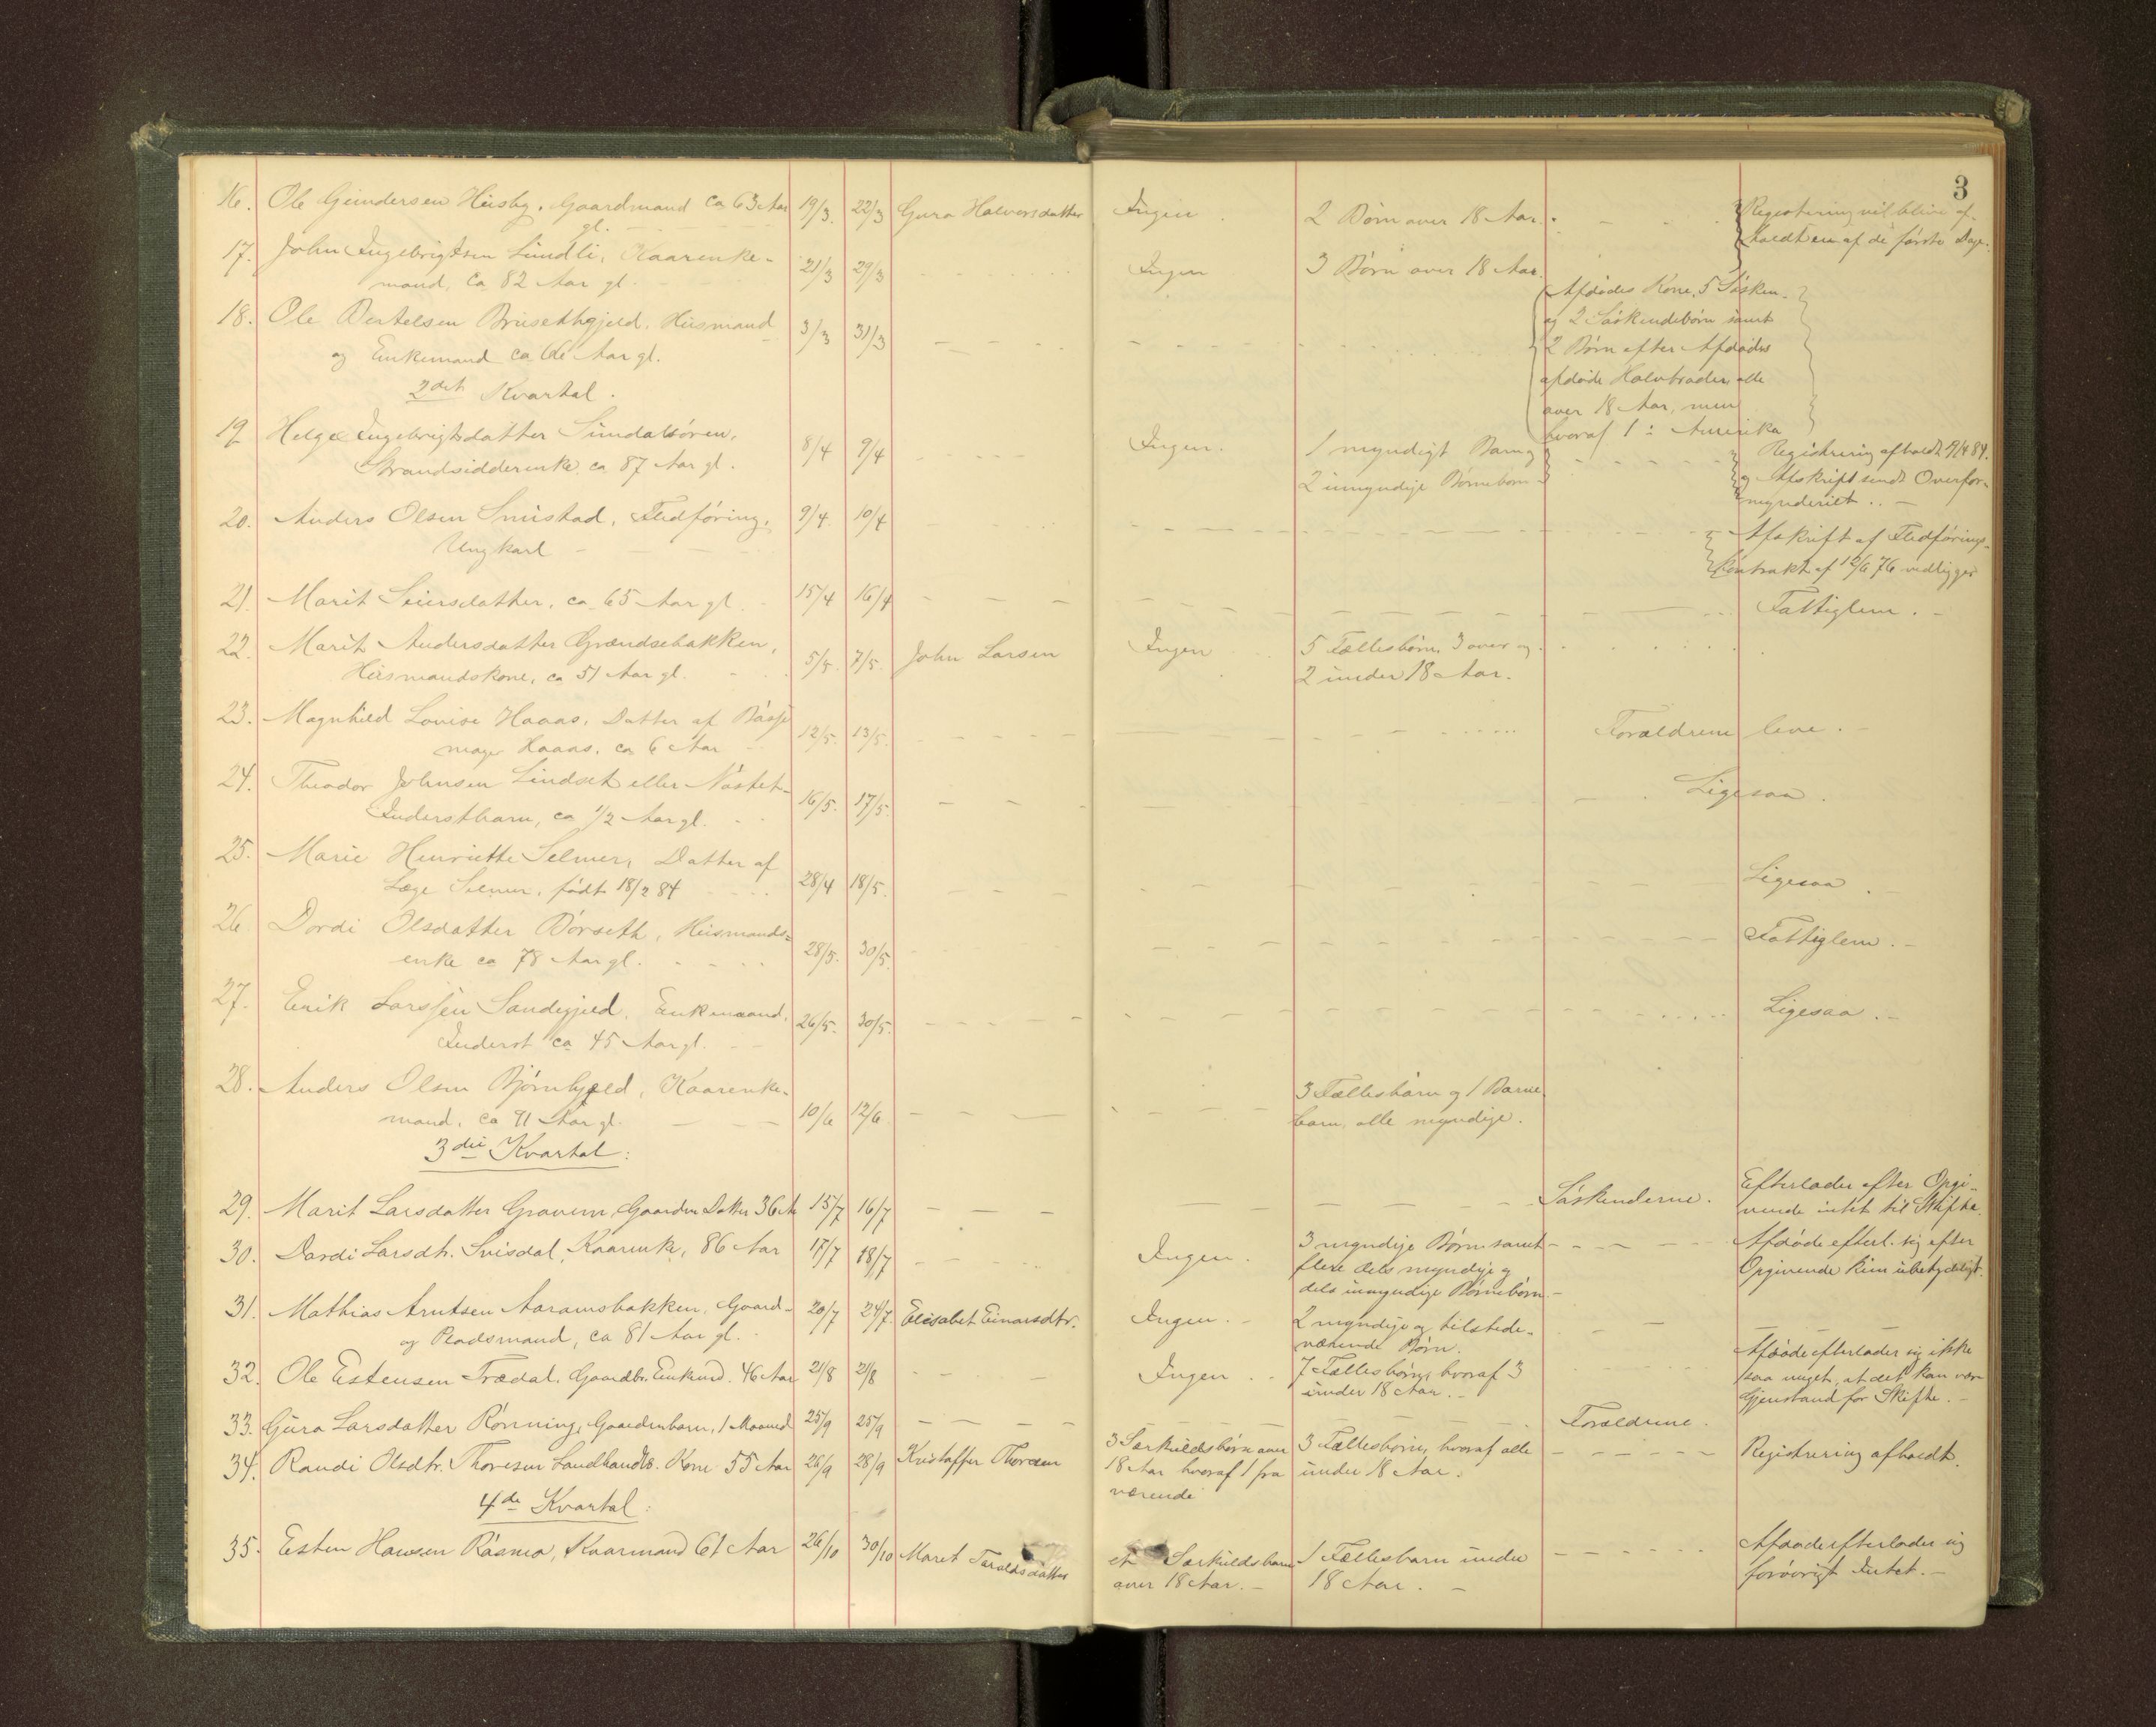 3
16. Ole Gundersen Huseby. Gaardmand ca 63 Aar 19/3. 22/3 Guro Halvorsdatter Ingen. 2 Børn over 18 Aar. Registrering vil blive af-
gl. holdt en af de første Dage.
17. John Ingebrigtsen Lundli, Kaarenke- 21/3 29/3 Ingen 3 Børn over 18 Aar.
mand, ca 82 Aar gl.
18. Ole Bertelsen Brusethgjeld. Husmand 3/3 31/3 Afdødes Kone, 5 Søsken.
og Enkemand ca 66 Aar gl. og 2 Søskendebørn samt
2 Børn efter Afdødes
afdøde Halvbroder, alle
over 18 Aar, men
hvoraf 1 i Amerika
2det Kvartal.
19 Helge Ingebrigtsdatter Sundalsøren, 8/4 9/4 Ingen. 1 myndigt Barn og Registrering afholdt 9/4 84.
Strandsidderenke ca 87 Aar gl. 2 umyndige Børnebørn og Afskrift sendt Overfor-
mynderiet.
20. Anders Olsen Smistad, Fledføring, 9/4. 10/4 Afskrift af Fledførings-
Ungkarl Kontrakt af 12/6 76 vedligger
21. Marit Seiersdatter, ca 65 Aar gl. 15/4 16/4 Fattiglem.
22. Marit Andersdatter Grændsebakken, 5/5. 7/5. John Larsen Ingen 5 Fællesbørn, 3 over og
Husmandskone, ca 51 Aar gl. 2 under 18 Aar.
23. Magnhild Lovise Haaas, Datter af Bøsse 12/5. 13/5. Forældrene leve.
mager Haaas, ca 6 Aar
24. Theodor Johnsen Lindset eller Nøstet 16/5. 17/5. Ligesaa.
Inderstbarn, ca 1/2 Aar gl.
25. Marie Henriette Selmer, Datter af 28/4 18/5. Ligesaa.
Læge Selmer, født 18/2 84
26 Dordi Olsdatter Børseth, Husmands- 28/5. 30/5. Fattiglem.
enke ca 78 Aar gl.
27. Erik Larssen Sandegjeld. Enkemand, 26/5. 30/5. Ligesaa.
Inderst ca 45 Aar gl.
28. Anders Olsen Bjørnhjeld, Kaarenke- 10/6 12/6 3 Fællesbørn og 1 Barne
mand, ca 91 Aar gl. barn, alle myndige.
3die Kvartal:
29. Marit Larsdatter Gravem, Gaardm. Datter 36 A 15/7 16/7 Søskenderne. Efterlader efter Opgi-
vende intet til Skifte.
30. Dordi Larsdtr. Svisdal, Kaarenke, 86 Aar 17/7 18/7 Ingen. 3 myndige Børn samt Afdøde efterl. sig efter
flere dels myndige og Opgivende kun ubetydeligt.
dels umyndige Børnebørn.
31. Mathias Arntsen Aaramsbakken, Gaard- 20/7 24/7. Elisabet Einarsdtr. Ingen. 2 myndige og tilstede-
og Pladsmand, ca 81 Aar gl. værende Børn.
32. Ole Estensen Trædal. Gaardbr. Enkmd. 46 Aar 21/8 21/8 Ingen 7 Fællesbørn, hvoraf 3 Afdøde efterlader sig ikke
under 18 Aar. saa meget, at det kan være
Gjenstand for Skifte.
33. Guro Larsdatter Rønning, Gaardm.barn, 1 Maaned 25/9 25/9 Forældrene.
34. Randi Olsdtr. Thoresen Landhandls. Kone 55 Aar 26/9 28/9 Kristoffer Thoresen 3 Særkuldsbørn over 3 Fællesbørn, hvoraf alle Registrering afholdt.
18 Aar hvoraf 1 fra under 18 Aar.
værende
4de Kvartal:
35. Esten Hansen Røsmo, Kaarmand 61 Aar 26/10 30/10 Maret Taraldsdatter et Særkuldsbarn 1 Fællesbarn under Afdøde efterlader sig
over 18 Aar. 18 Aar. forøvrigt Intet.